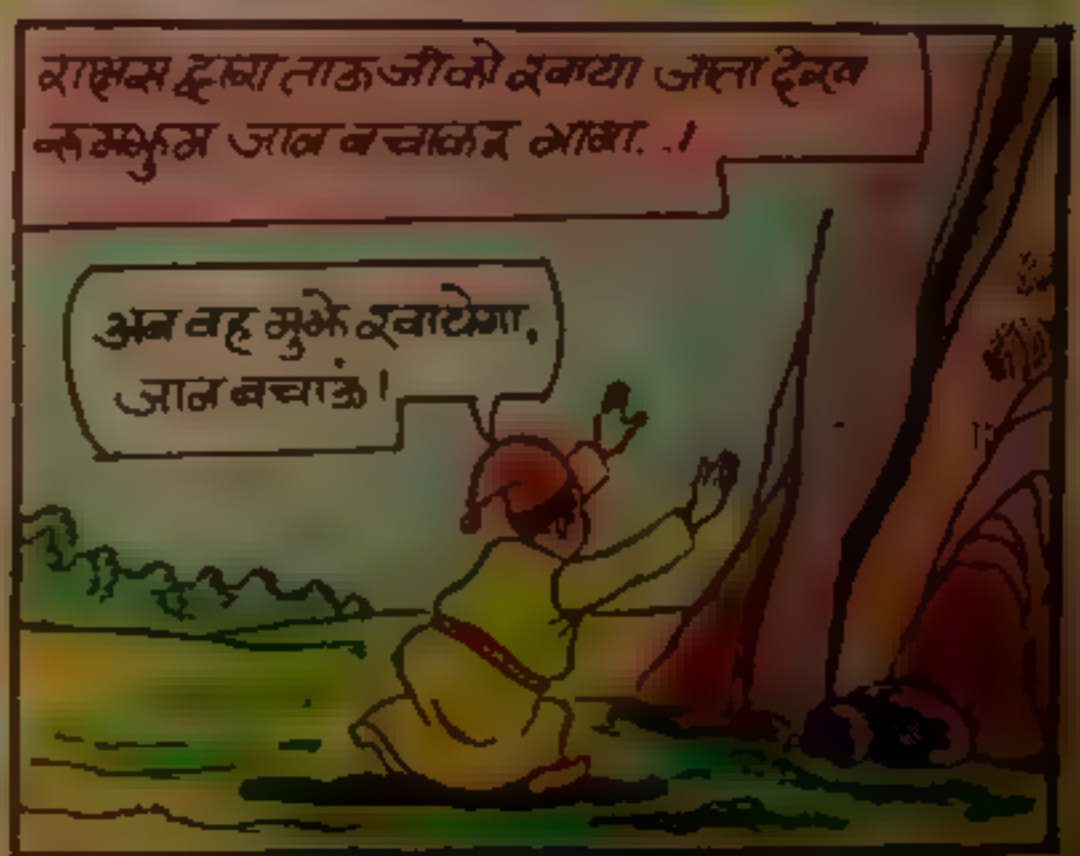 राक्षस द्वारा ताऊजी को खाया जाता देख
रूमझुम जान बचाकर भागा. .!
अब वह मुझे खायेगा,
जान बचाऊं!